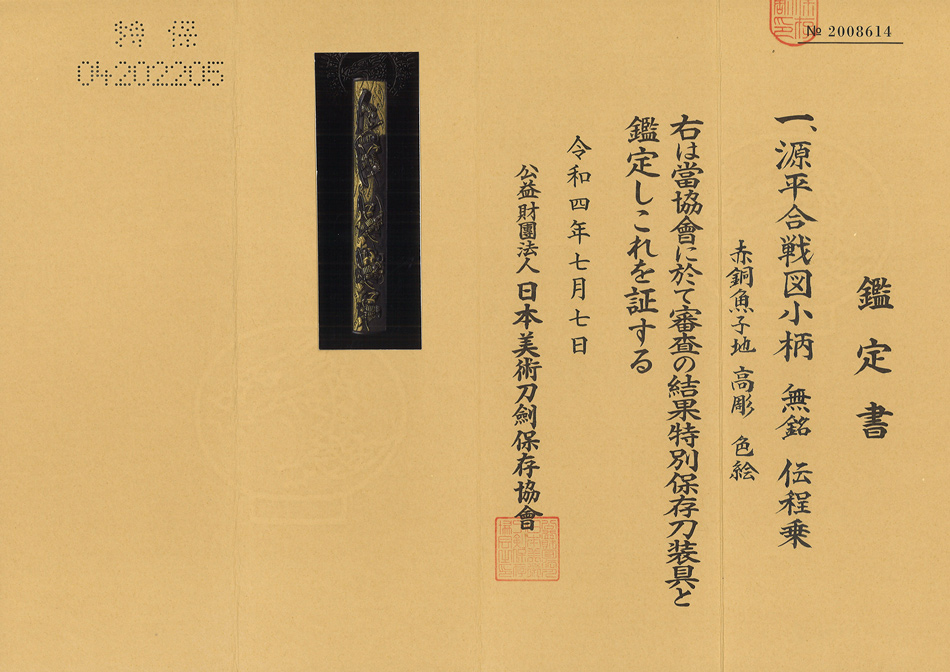 № 2008614
鑑定書
一、源平合戦図小柄 無銘 伝程乗
赤銅魚子地 高彫 色絵
右は當協會に於て審査の結果特別保存刀装具と
鑑定しこれを証する
令和四年七月七日
公益財團法人日本美術刀劍保存協會
特保
04202205